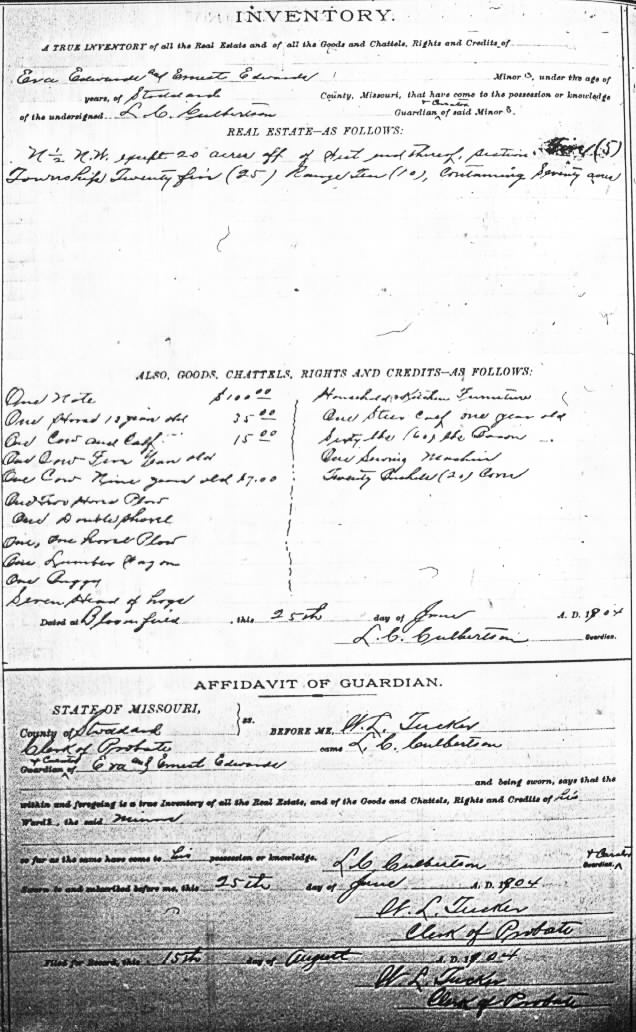 INVENTORY.
A TRUE INVENTORY of all the Real Estate and of all the Goods and Chattels, Rights and Credits of
Eva Edwards & Ernest Edwards Minor s, under the age of
years, of Stoddard County, Missouri, that have come to the possession or knowledge
of the undersigned L. C. Culbertson Guardian & Curator of said Minor s.
REAL ESTATE—AS FOLLOWS:
N ½ N.W. except 20 acres off of West end thereof, section Five (5)
Township Twenty five (25) Range Ten (10), Containing Seventy acres
ALSO, GOODS, CHATTELS, RIGHTS AND CREDITS—AS FOLLOWS:
One Note $100.00
One Horse 12 year old 35.00
One Cow and Calf 15.00
One Cow Five Year old
One Cow Nine years old $7.00
One Two Horse Plow
One Double Shovel
One, One horse Plow
One Lumber Wagon
One Buggy
Seven Head of hogs
Household & Kitchen Furniture
One Steer Calf one year old
Sixty lbs (60) lbs Bacon
One Sewing Machine
Twenty Bushels (20) Corn
Dated at Bloomfield, this 25th day of June A. D. 1904
L. C. Culbertson Guardian.
AFFIDAVIT OF GUARDIAN.
STATE OF MISSOURI,
County of Stoddard ss. BEFORE ME, W. L. Tucker
Clerk of Probate came L. C. Culbertson
Guardian & Curator of Eva and Ernest Edwards
and being sworn, says that the
within and foregoing is a true Inventory of all the Real Estate, and of the Goods and Chattels, Rights and Credits of his
Ward s, the said Minors
so far as the same have come to his possession or knowledge. L. C. Culbertson Guardian & Curator
Sworn to and subscribed before me, this 25th day of June A. D. 1904
W. L. Tucker
Clerk of Probate
Filed for Record, this 15th day of August A. D. 1904
W. L. Tucker
Clerk of Probate